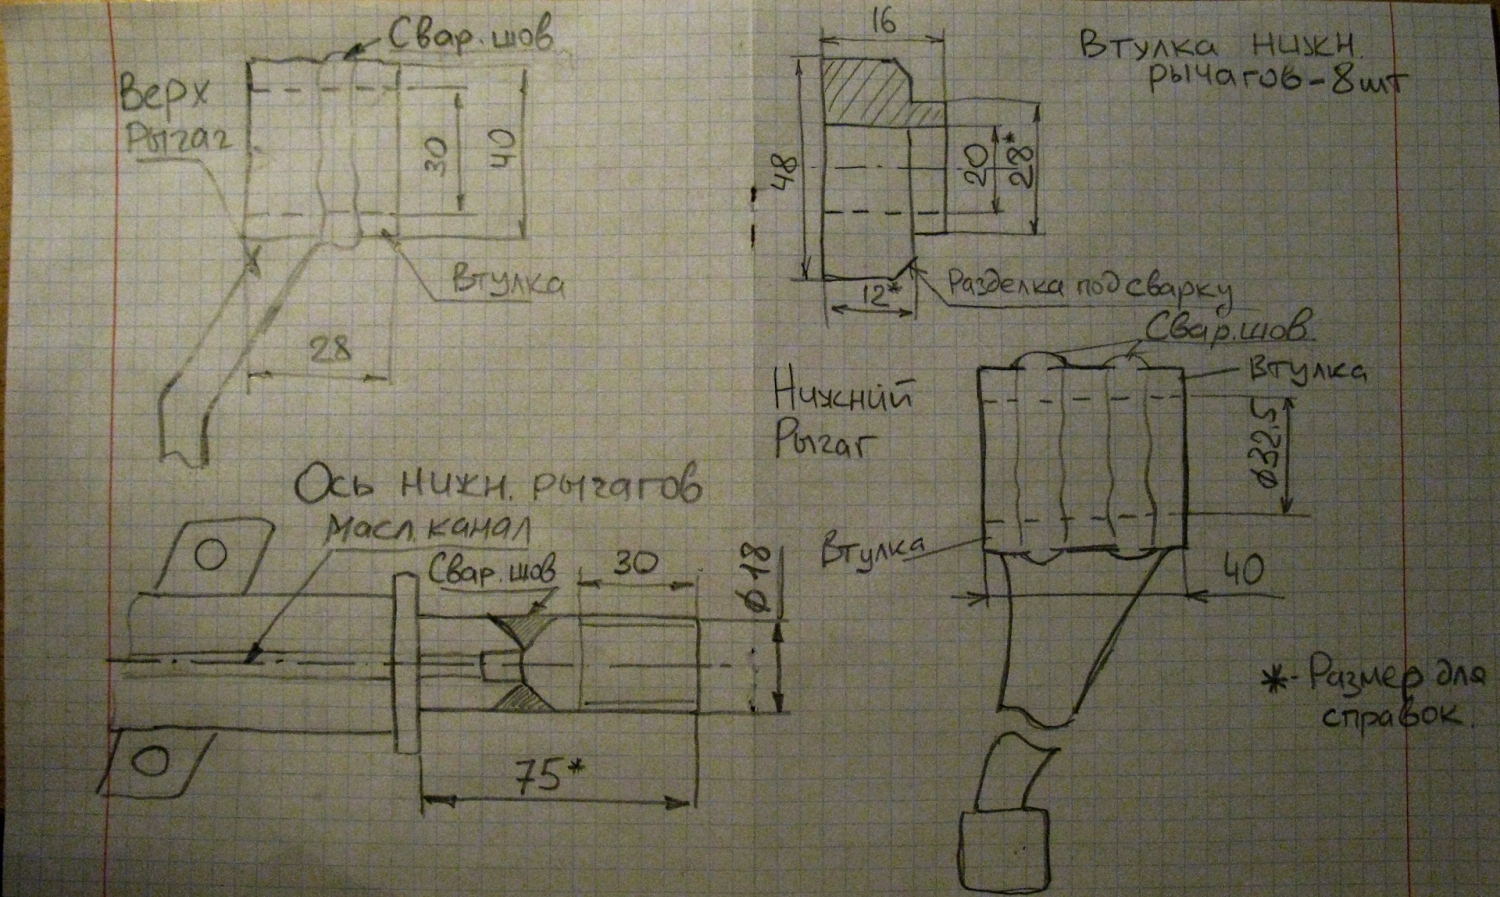 Свар.шов
Верх
Рычаг
30
40
Втулка
28
16
Втулка нижн.
рычагов-8шт
48
20
28*
12*
Разделка под сварку
Свар.шов
Нижний
Рычаг
Втулка
ø32,5
Втулка
40
Ось нижн. рычагов
Масл.канал
Свар.шов
30
ø18
75*
*-Размер для
справок.